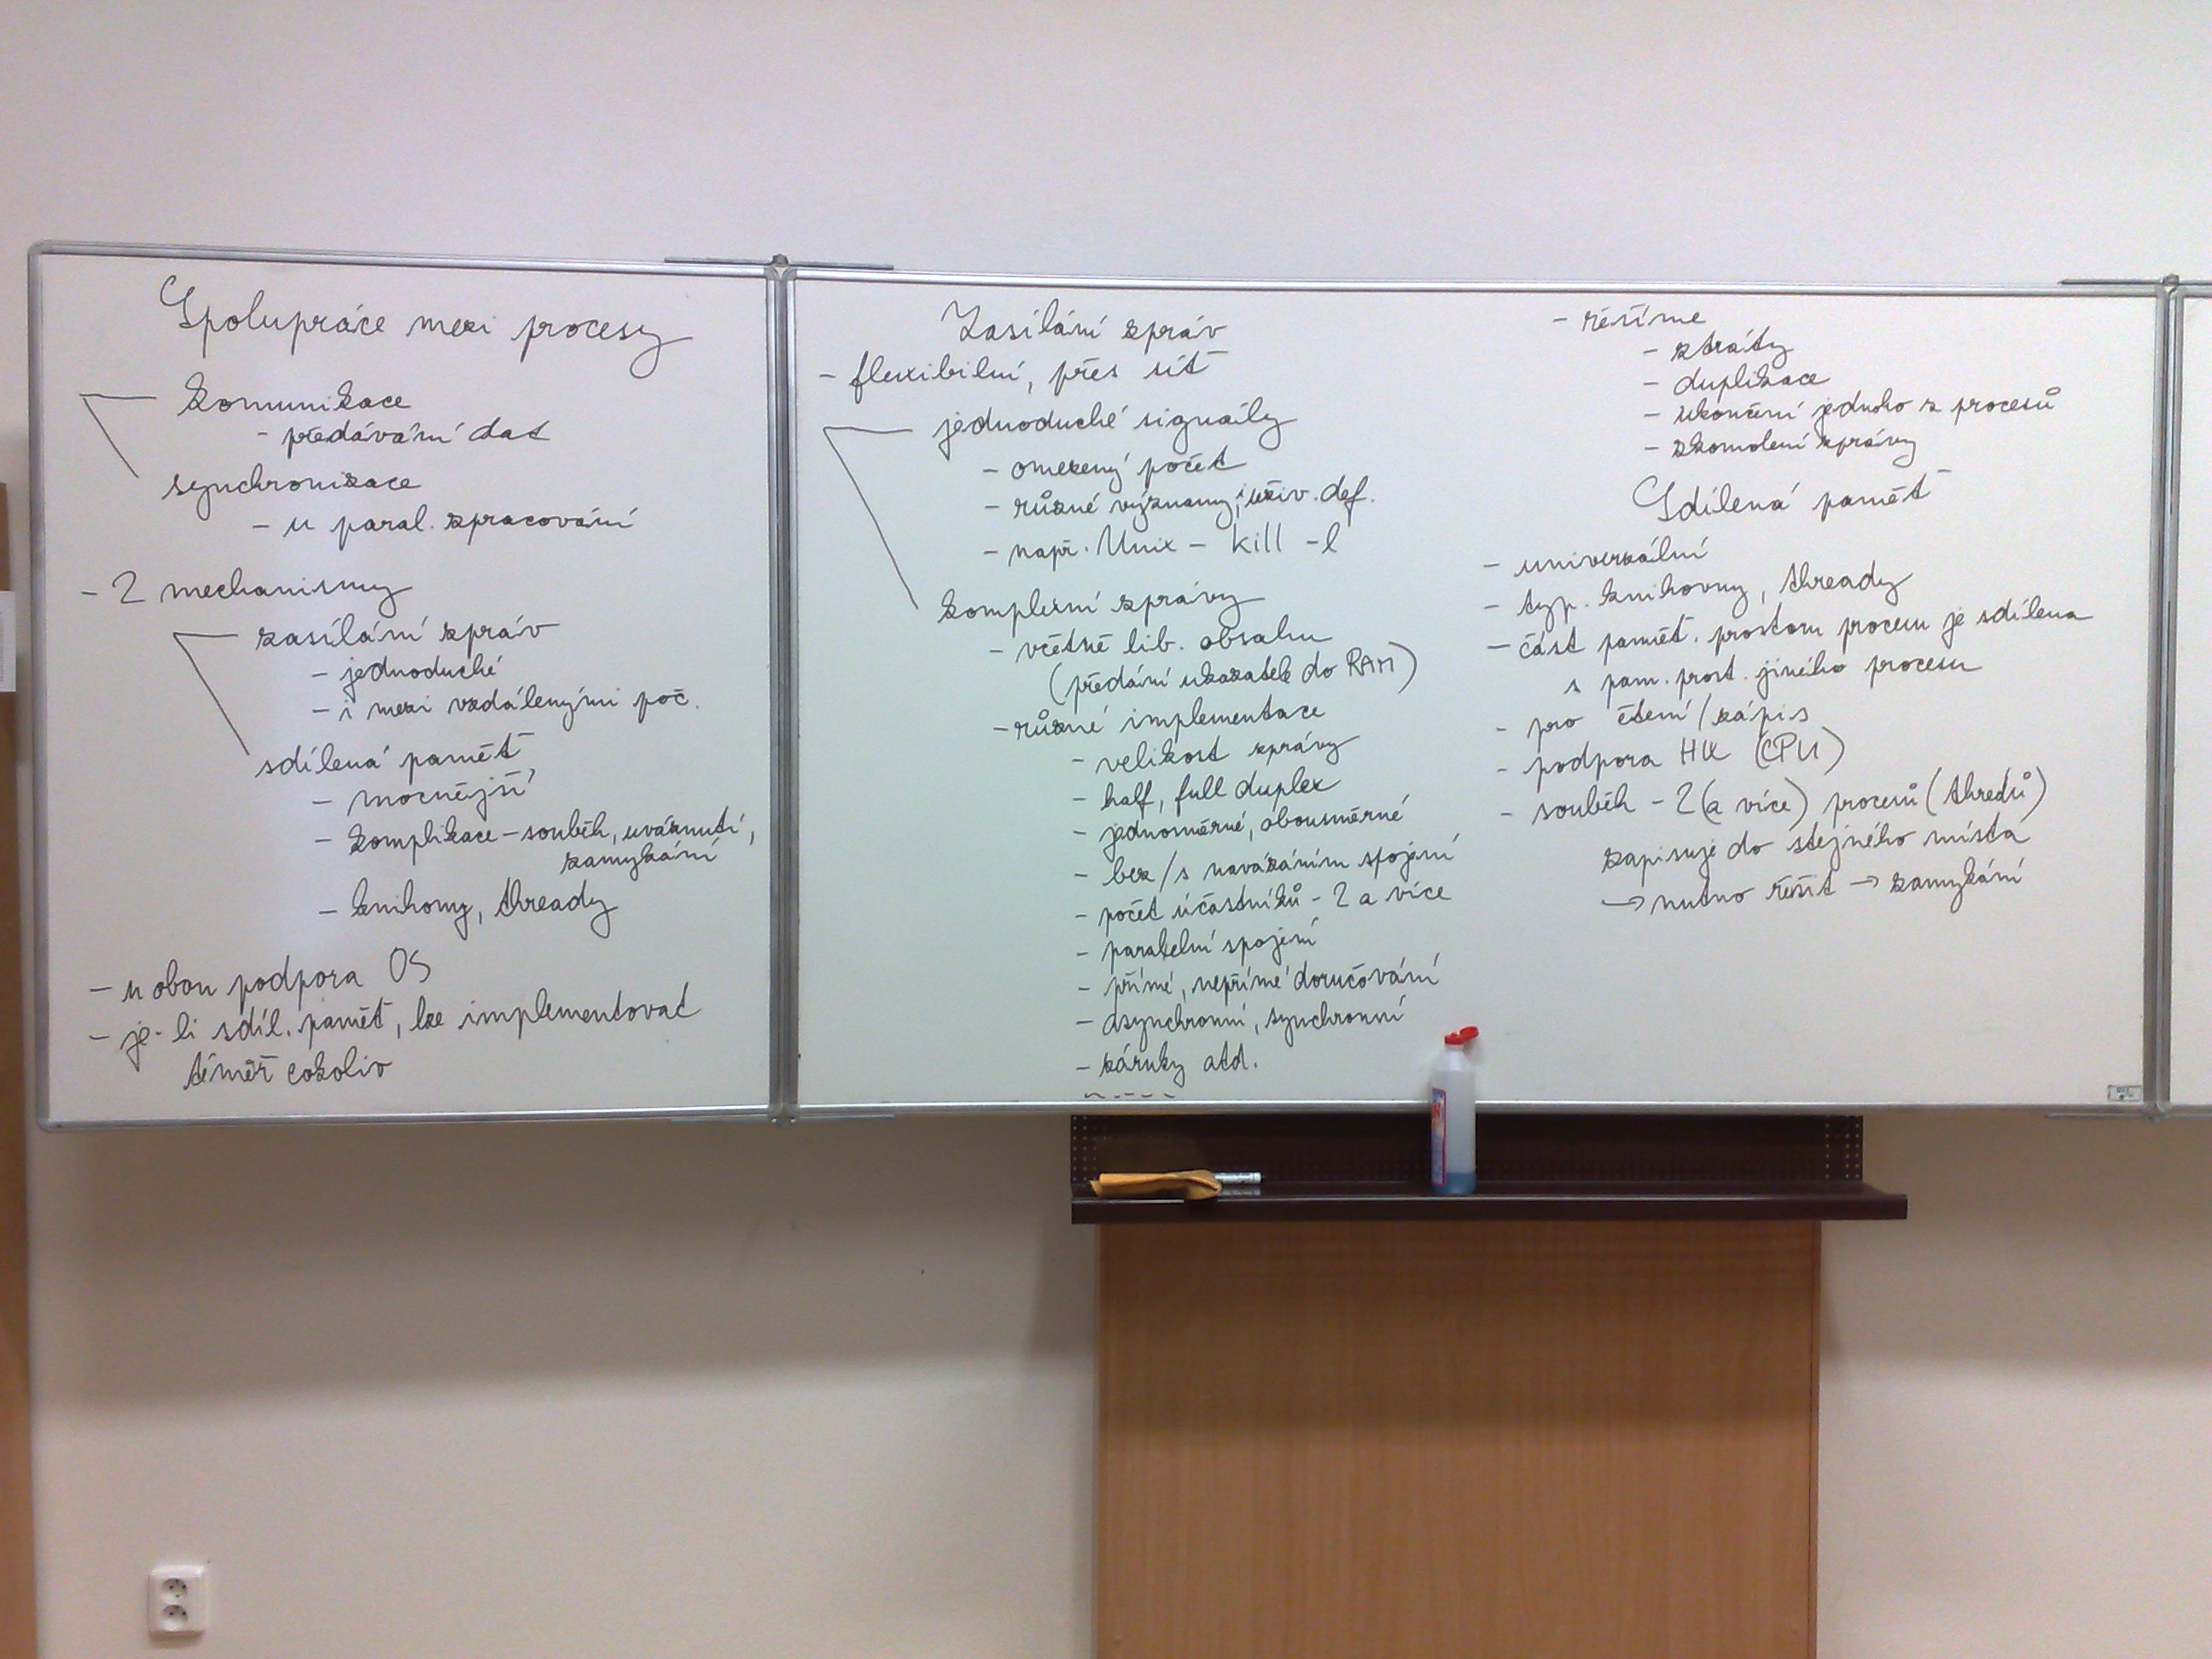 Spolupráce mezi procesy
komunikace
- předávání dat
synchronizace
- u paral. zpracování
- 2 mechanismy
zasílání zpráv
- jednoduché
- i mezi vzdálenými poč.
sdílená paměť
- mocnější
- komplikace - souběh, uváznutí,
zamykání
- knihovny, thready
- u obou podpora OS
- je-li sdíl. paměť, lze implementovat
téměř cokoliv
Zasílání zpráv
- flexibilní, přes síť
jednoduché signály
- omezený počet
- různé významy, i uživ. def.
- např. Unix - kill -l
komplexní zprávy
- včetně lib. obsahu
(předání ukazatele do RAM)
- různé implementace
- velikost zprávy
- half, full duplex
- jednosměrné, obousměrné
- bez/s navázáním spojení
- počet účastníků - 2 a více
- paralelní spojení
- přímé, nepřímé doručování
- asynchronní, synchronní
- záruky atd.
- řešíme
- ztráty
- duplikace
- ukončení jednoho z procesů
- zkomolení zprávy
Sdílená paměť
- univerzální
- typ. knihovny, thready
- část paměť. prostoru procesu je sdílena
s pam. prost. jiného procesu
- pro čtení/zápis
- podpora HW (CPU)
- souběh - 2 (a více) procesů (thredů)
zapisuje do stejného místa
→ nutno řešit → zamykání